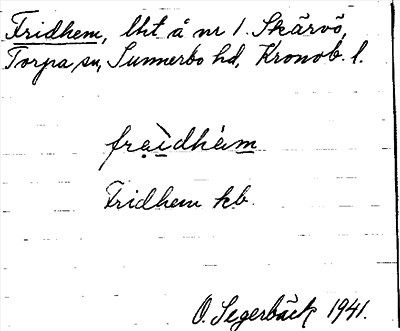 Fridhem, lht å nr 1. Skärvö,
Torpa sn, Sunnerbo hd, Kronob. l.
fre̱ìdhe̱m
Fridhem kb.
O. Segerbäck 1941.